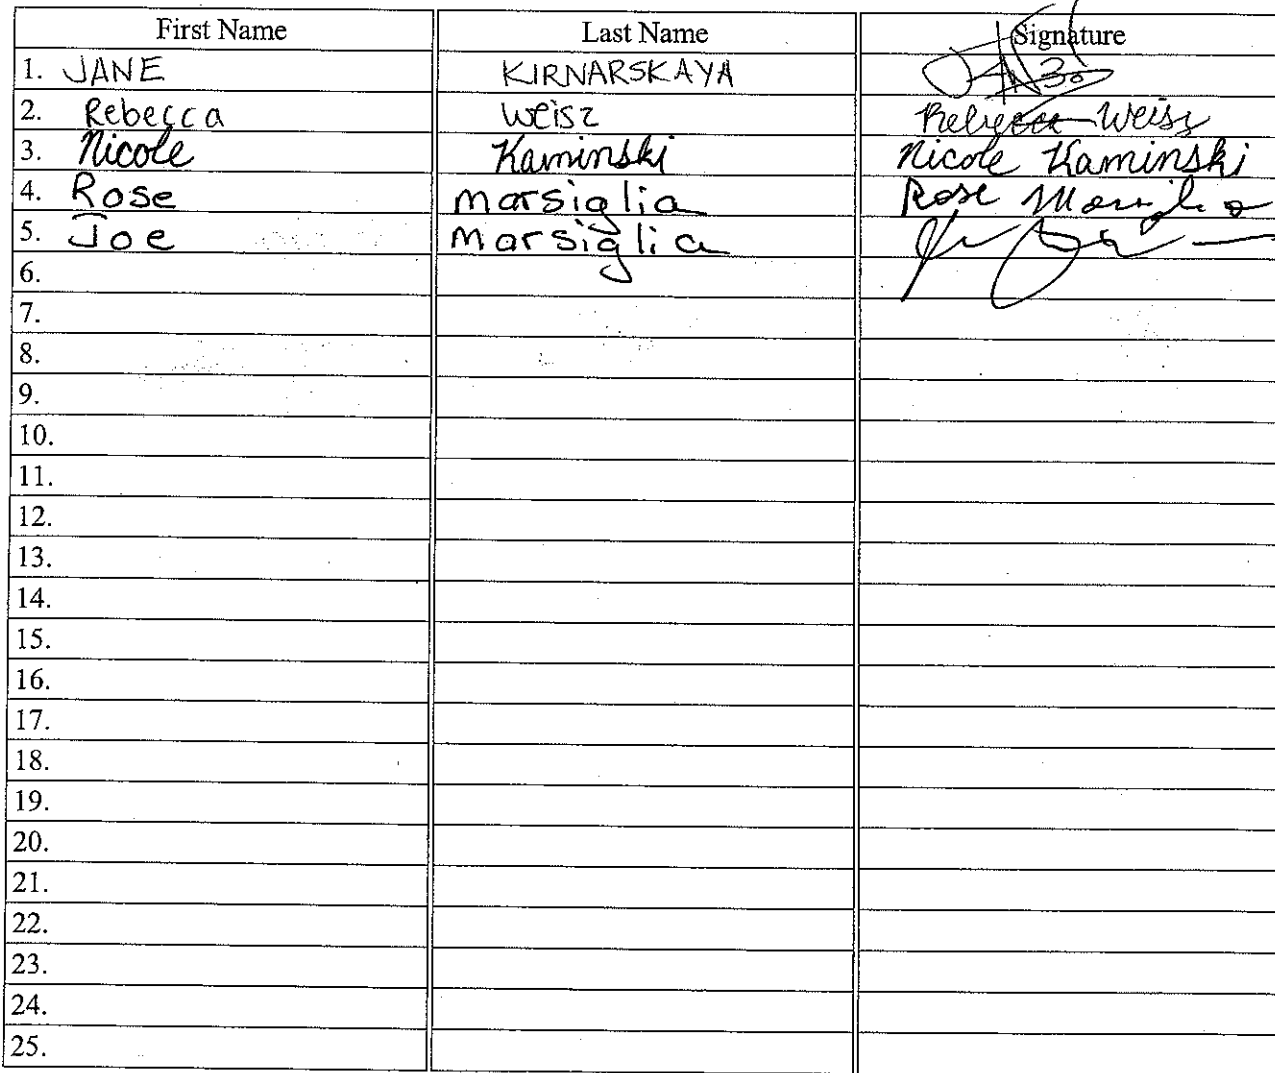 First Name Last Name Signature
1. JANE KIRNARSKAYA
2. Rebecca Weisz Rebecca Weisz
3. Nicole Kaminski Nicole Kaminski
4. Rose Marsiglia Rose Marsiglia
5. Joe Marsiglia
6.
7.
8.
9.
10.
11.
12.
13.
14.
15.
16.
17.
18.
19.
20.
21.
22.
23.
24.
25.